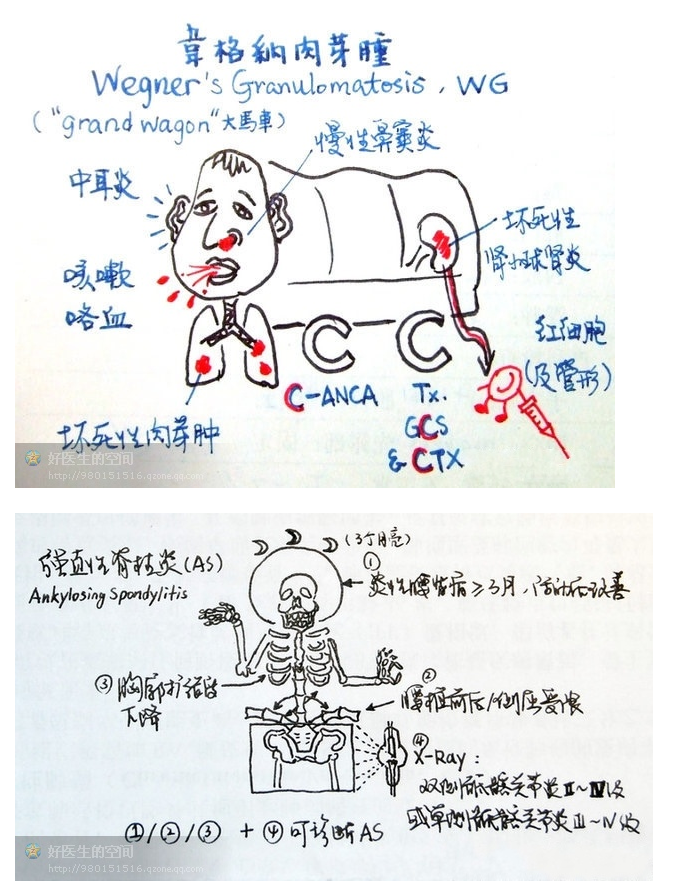 韋格納肉芽腫
Wegner's Granulomatosis, WG
("grand wagon"大馬車)
慢性鼻竇炎
中耳炎
坏死性
肾小球肾炎
咳嗽
咯血
红细胞
(及管形)
C C
C-ANCA
Tx.
GCS
& CTX
坏死性肉芽肿
好医生的空间
http://980151516.qzone.qq.com
强直性脊柱炎(AS)
Ankylosing Spondylitis
(3个月亮)
①
炎性腰背痛≥3月,活动后改善
③胸廓扩活度
下降
②
腰椎前后/侧屈受限
④
X-Ray:
双侧骶髂关节炎Ⅱ~Ⅳ级
或单侧骶髂关节炎Ⅲ~Ⅳ级
①/②/③ + ④可诊断AS
好医生的空间
http://980151516.qzone.qq.com